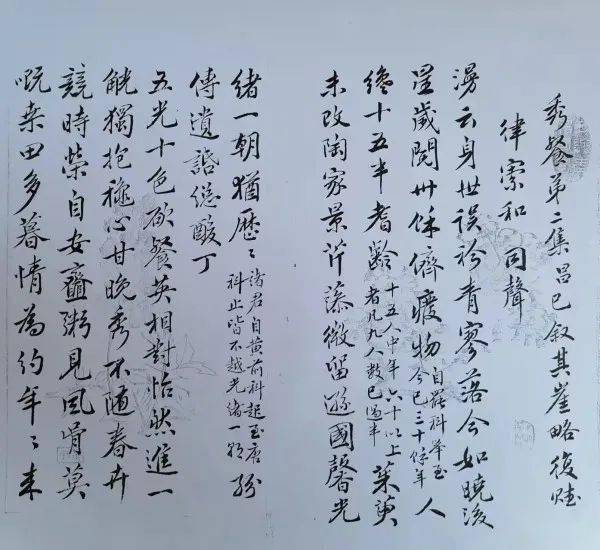 秀餐第二集昌已叙其崖略復賦
律索和 同聲
漫云身世誤衿青寥落今如曉後
星歲閱卅餘儕癈物自罷科舉至今已三十餘年人
纔十五半耆齡十五人中年六十以上者凡九人數已過半茱萸
未改陶家景芹藻微留遊國馨光
緒一朝猶歷〻諸君自黃前科起至唐科止皆不越光緒一朝紛
傳遺誥總酸丁
五光十色欲餐英相對怡然進一
觥獨抱穐心甘晚秀不隨春卉
競時榮自安齏粥見風骨莫
嘅桑田多暮情為約年〻來